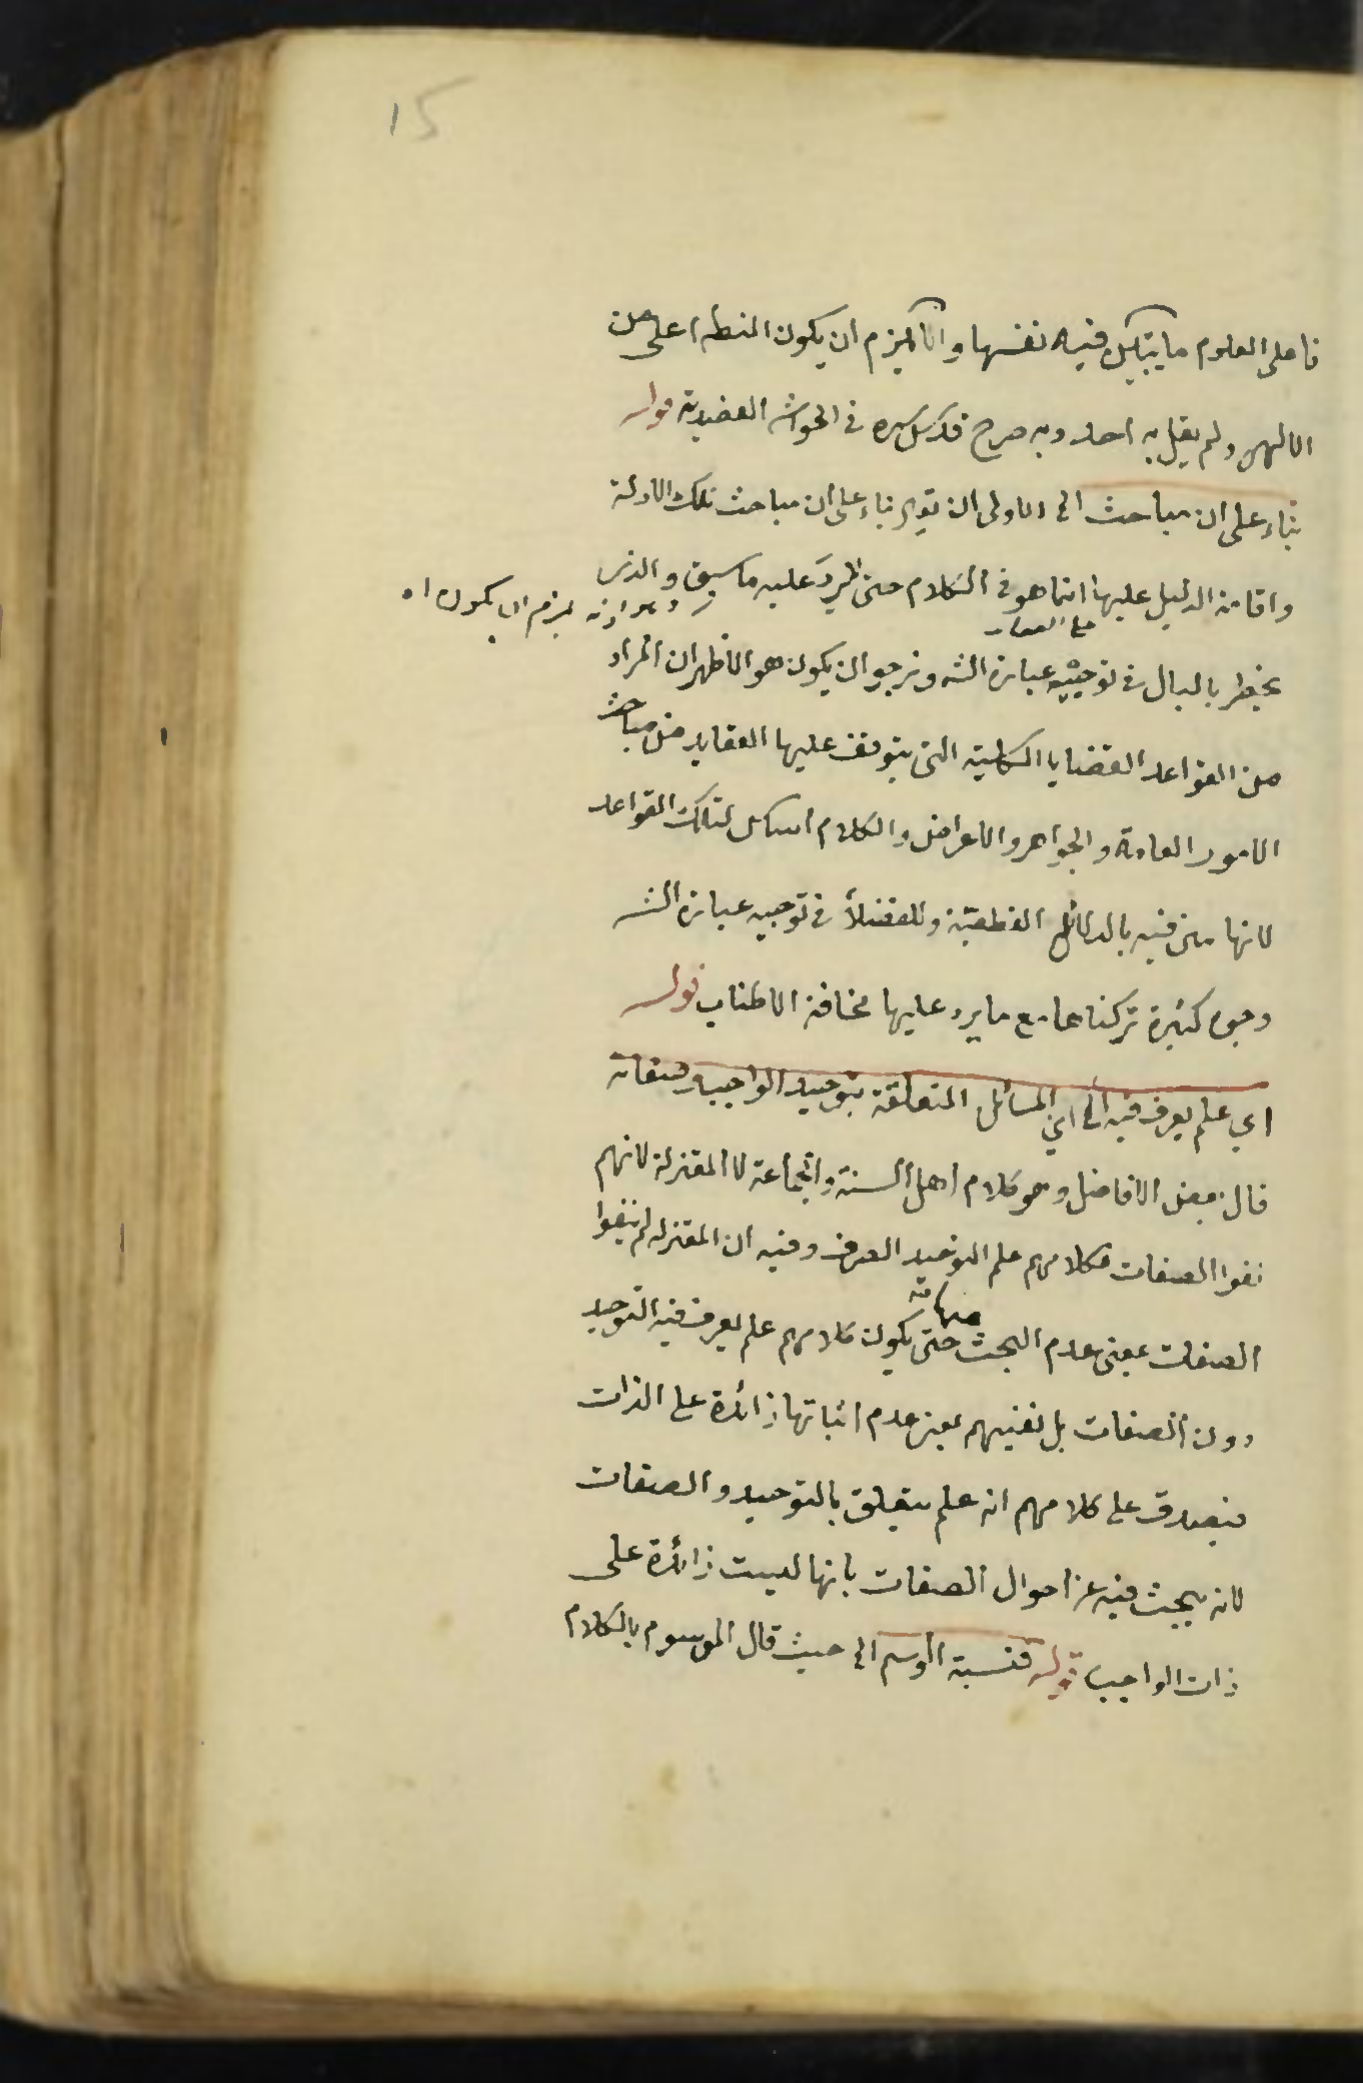 15
فاعلى العلوم ما يتبين فيه نفسها والا لزم ان يكون المنطق اعلى من
الالهى ولم يقل به احد وبه صرح قدس سره في الحواشى العضدية قوله
بناء على ان مباحث الى الاولى ان يقول بناء على ان مباحث تلك الادلة
واقامة الدليل عليها انما هو في الكلام حتى لا يرد عليه ما سبق والذى
وهو انه يلزم ان يكون اه
يخطر بالبال في توجيه عبارة الشـ ونرجو ان يكون هو الاظهر ان المراد
من القواعد القضايا الكلية التى يتوقف عليها العقايد من مباحث
الامور العامة والجواهر والاعراض والكلام اساس لتلك القواعد
لانها فيه بالدلائل القطعية وللفضلاء في توجيه عبارة الشـ
وجوه كثيرة تركناها مع ما يرد عليها مخافة الاطناب قوله
اي علم يعرف فيه الى اي المسائل المتعلقة بتوحيد الواجب وصفاته
قال بعض الافاضل وهو كلام اهل السنة والجماعة لا المعتزلة لانهم
نفوا الصفات فكلامهم علم التوحيد الصرف وفيه ان المعتزلة لم ينفوا
الصفات بمعنى عدم البحث حتى يكون كلامهم علم يعرف فيه التوحيد
دون الصفات بل نفيهم بمعنى عدم اثباتها زائدة على الذات
فيصدق على كلامهم انه علم يتعلق بالتوحيد والصفات
لانه يبحث فيه عن احوال الصفات بانها ليست زائدة على
ذات الواجب قوله فنسبة الوسم الى حيث قال الموسوم بالكلام